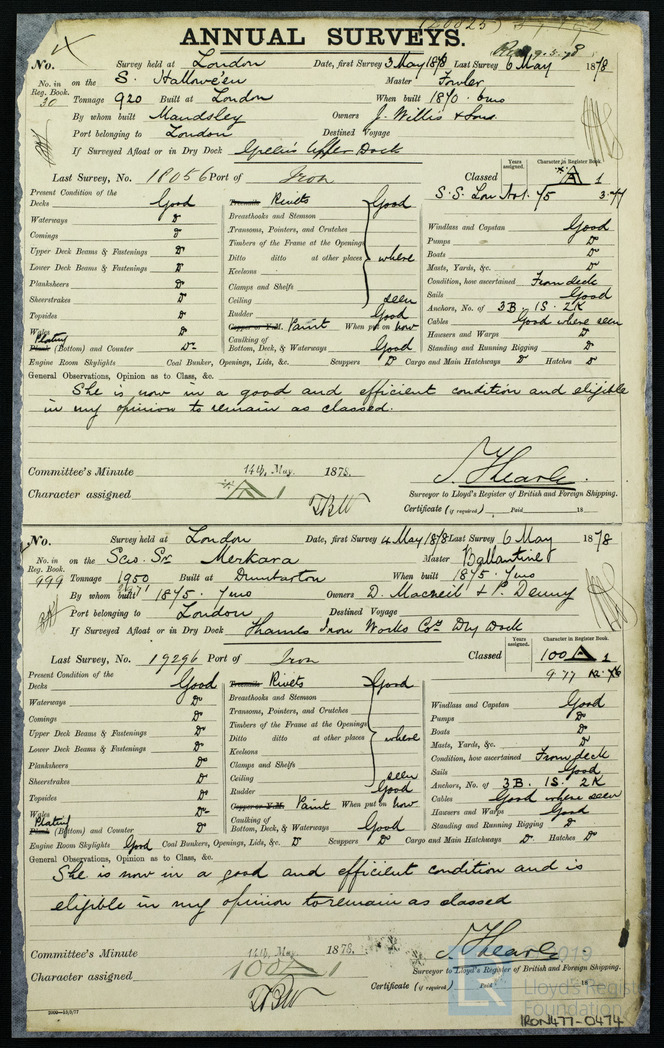 ANNUAL SURVEYS.
No. Survey held at London Date, first Survey 3 May 1878 Last Survey 6 May 1878
No. in Reg. Book. 30 on the S. Hallowe'en Master Fowler
Tonnage 920 Built at London When built 1870. 6mo
By whom built Maudsley Owners J. Willis & Sons
Port belonging to London Destined Voyage
If Surveyed Afloat or in Dry Dock Green's Upper Dock
Last Survey, No. 18056 Port of Iron Classed Years assigned. Character in Register Book. A 1
S.S. Lon 75 3.77
Present Condition of the
Decks Good Rivets Good
Waterways Do Breasthooks and Stemson Windlass and Capstan Good
Comings Do Transoms, Pointers, and Crutches Pumps Do
Upper Deck Beams & Fastenings Do Timbers of the Frame at the Openings Boats Do
Lower Deck Beams & Fastenings Do Ditto ditto at other places where Masts, Yards, &c. Do
Planksheers Do Keelsons Condition, how ascertained From deck
Sheerstrakes Do Clamps and Shelfs Sails Good
Topsides Do Ceiling seen Anchors, No. of 3B. 1S. 2K
Wales Do Rudder Good Cables Good where seen
Plating (Bottom) and Counter Do Copper or Y.M. Paint When put on now Hawsers and Warps Do
Caulking of Bottom, Deck, & Waterways Good Standing and Running Rigging Do
Engine Room Skylights Coal Bunker, Openings, Lids, &c. Scuppers Do Cargo and Main Hatchways Do Hatches Do
General Observations, Opinion as to Class, &c.
She is now in a good and efficient condition and eligible
in my opinion to remain as classed.
Committee's Minute 14th, May. 1878.
Character assigned A 1
Surveyor to Lloyd's Register of British and Foreign Shipping.
Certificate (if required) Paid 18
No. Survey held at London Date, first Survey 4 May 1878 Last Survey 6 May 1878
No. in Reg. Book. 999 on the Scw. Sr. Merkara Master Ballantine
Tonnage 1950 Built at Dumbarton When built 1875. 7mo
By whom built 1875. 7mo Owners D. Macneil & P. Denny
Port belonging to London Destined Voyage
If Surveyed Afloat or in Dry Dock Thames Iron Works Cos Dry Dock
Last Survey, No. 19296 Port of Iron Classed Years assigned. Character in Register Book. 100 A 1
9.77
Present Condition of the
Decks Good Rivets Good
Waterways Do Breasthooks and Stemson Windlass and Capstan Good
Comings Do Transoms, Pointers, and Crutches Pumps Do
Upper Deck Beams & Fastenings Do Timbers of the Frame at the Openings Boats Do
Lower Deck Beams & Fastenings Do Ditto ditto at other places where Masts, Yards, &c. Do
Planksheers Do Keelsons Condition, how ascertained From deck
Sheerstrakes Do Clamps and Shelfs Sails Good
Topsides Do Ceiling seen Anchors, No. of 3B. 1S. 2K
Wales Do Rudder Good Cables Good where seen
Plating (Bottom) and Counter Do Copper or Y.M. Paint When put on now Hawsers and Warps Good
Caulking of Bottom, Deck, & Waterways Good Standing and Running Rigging Do
Engine Room Skylights Good Coal Bunkers, Openings, Lids, &c. Do Scuppers Do Cargo and Main Hatchways Do Hatches Do
General Observations, Opinion as to Class, &c.
She is now in a good and efficient condition and is
eligible in my opinion to remain as classed
Committee's Minute 14th, May. 1878.
Character assigned 100 A 1
Surveyor to Lloyd's Register of British and Foreign Shipping.
Certificate (if required) Paid 18
Lloyd's Register Foundation
IRON477-0474